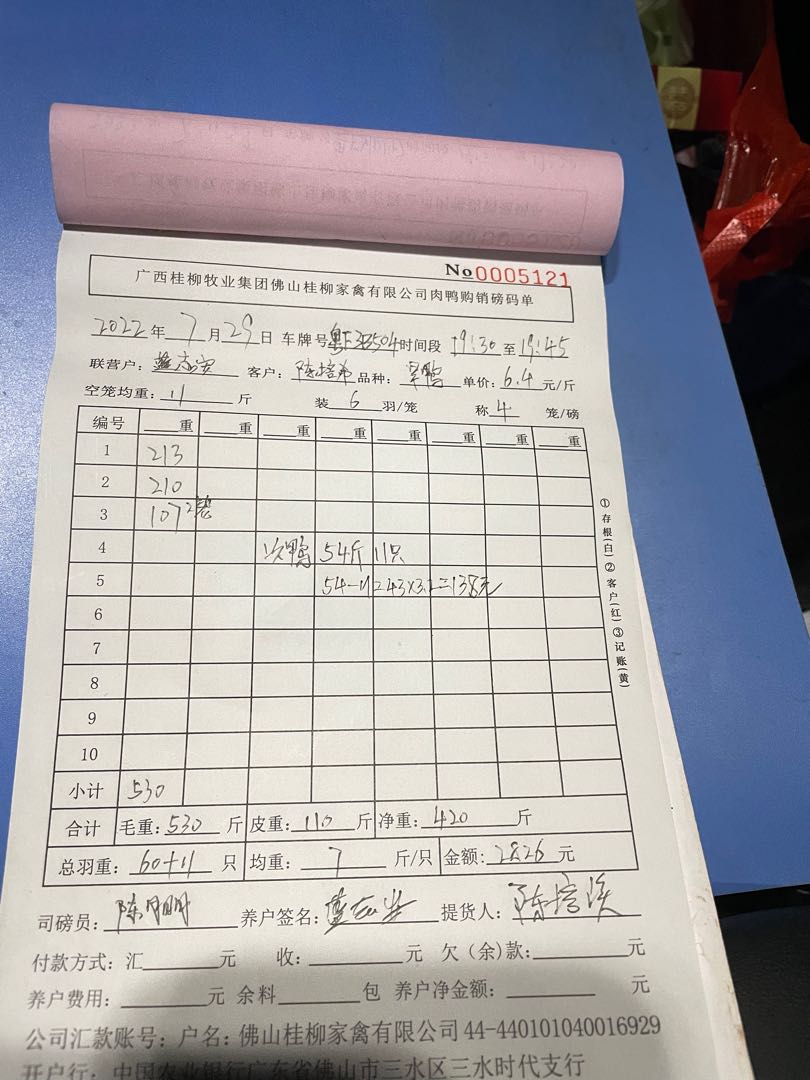 No 0005121
广西桂柳牧业集团佛山桂柳家禽有限公司肉鸭购销磅码单
2022年 7月 29日 车牌号 粤F3B504 时间段 19:30 至 19:45
联营户: 客户: 陈培 品种: 单价: 6.4 元/斤
空笼均重: 11 斤 装 6 羽/笼 称 4 笼/磅
编号 重 重 重 重 重 重 重
1 213
2 210
3 107 2
4 次鸭 54斤 11只
5 54-11=43×3.2=138元
6
7
8
9
10
小计 530
合计 毛重: 530 斤 皮重: 110 斤 净重: 420 斤
总羽重: 60+11 只 均重: 7 斤/只 金额: 2826 元
司磅员: 陈明 养户签名: 提货人: 陈培
付款方式: 汇 元 收: 元 欠(余)款: 元
养户费用: 元 余料 包 养户净金额: 元
公司汇款账号: 户名: 佛山桂柳家禽有限公司 44-440101040016929
开户行: 中国农业银行广东省佛山市三水区三水时代支行
①存根(白)②客户(红)③记账(黄)